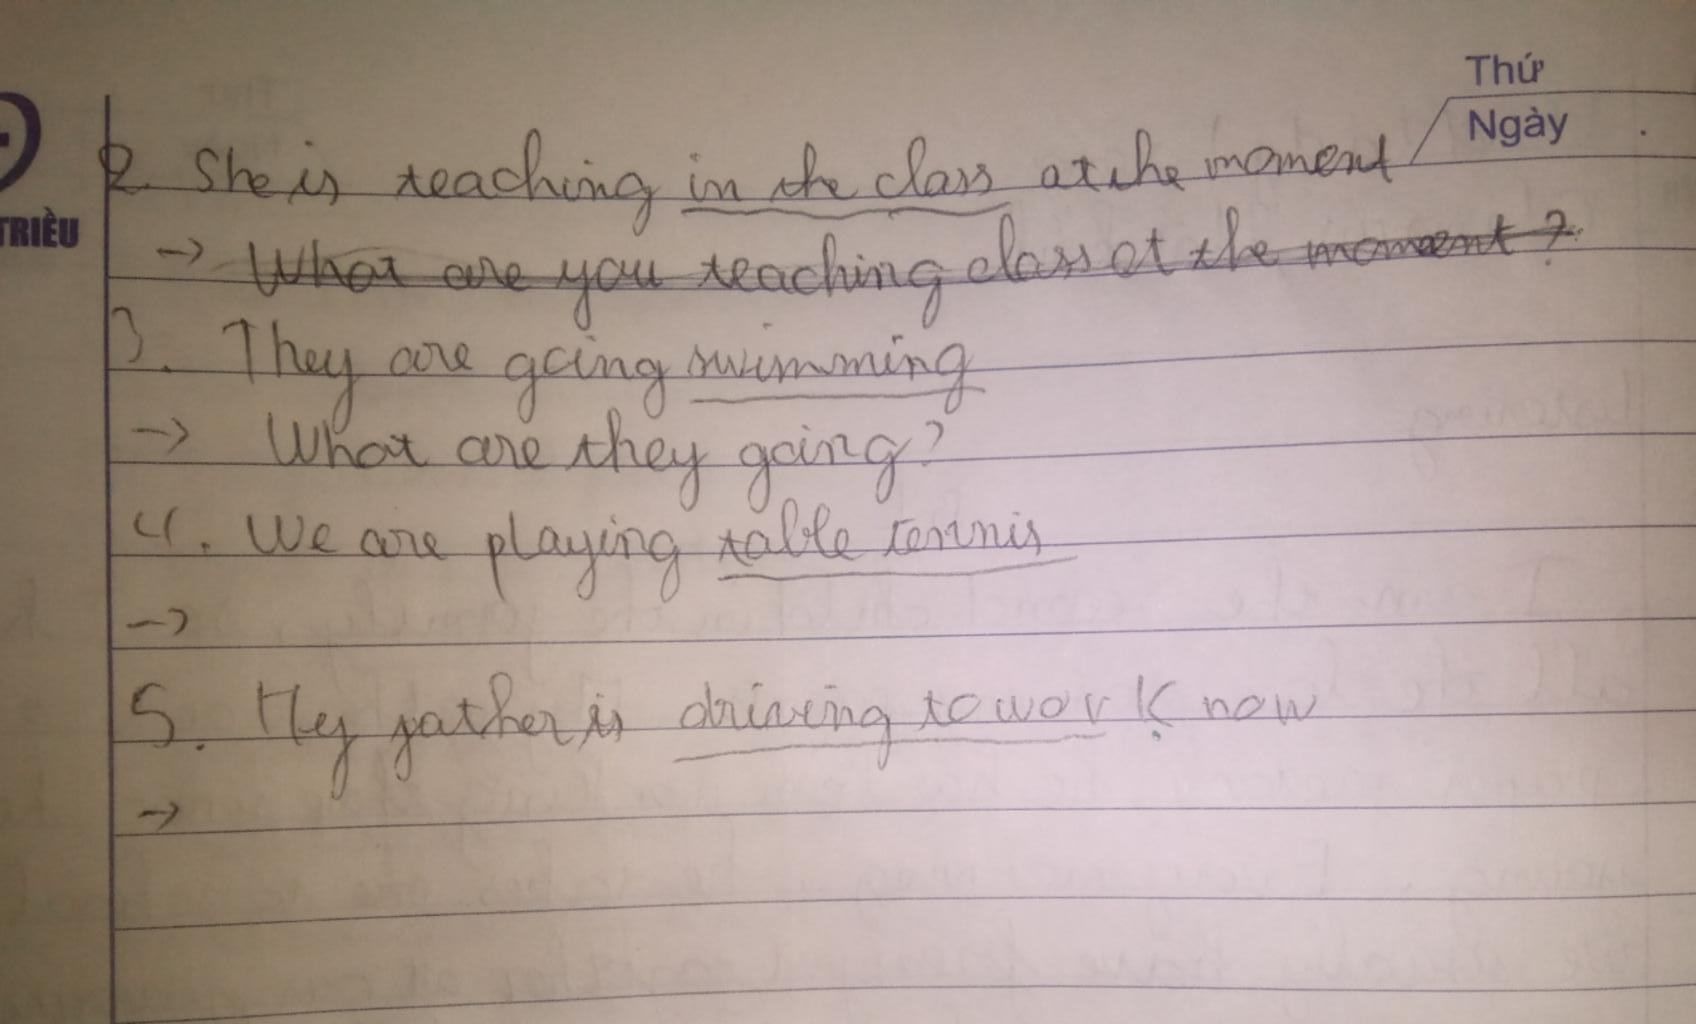 Thứ
Ngày
TRIỀU
2. She is teaching in the class at the moment
-> What are you teaching class at the moment?
3. They are going swimming
-> What are they going?
4. We are playing table tennis
->
5. My father is driving to work now
->